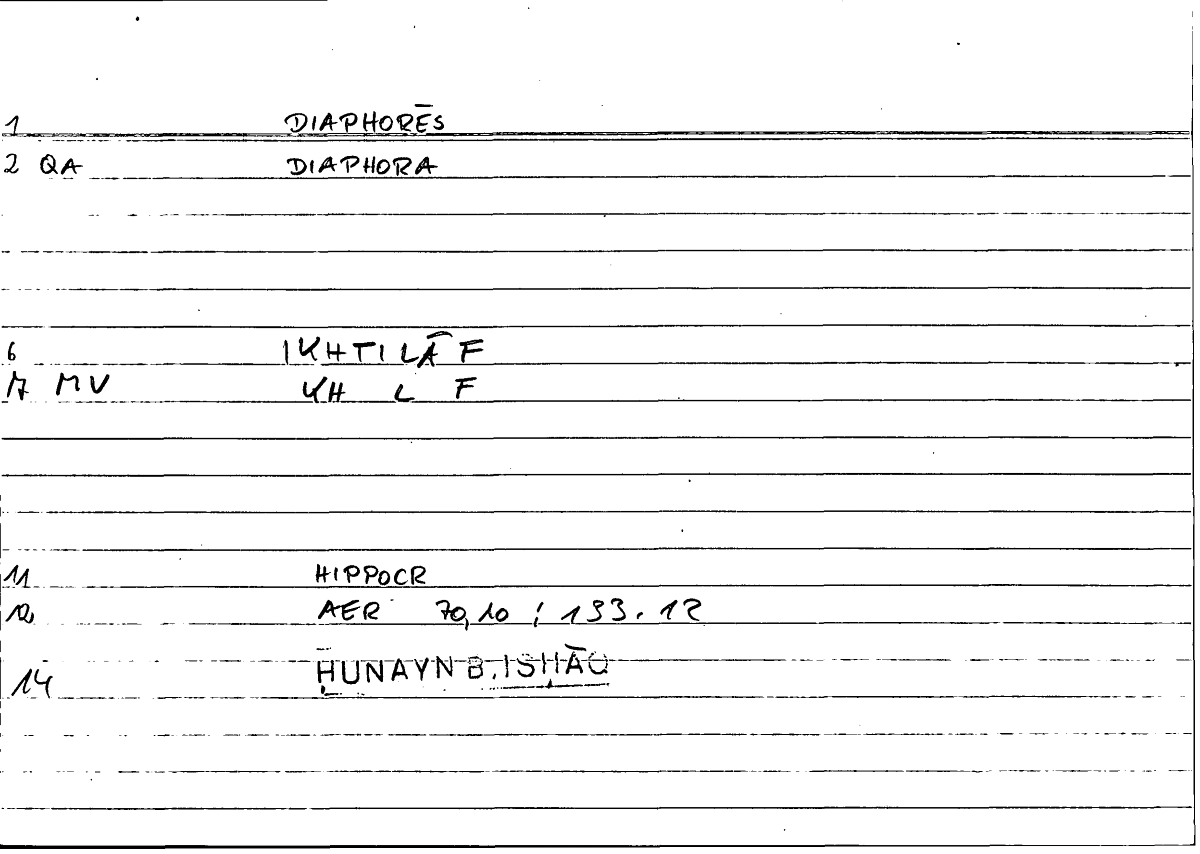 1 DIAPHORĒS
2 QA DIAPHORA
6 IKHTILĀF
7 MV KH L F
11 HIPPOCR
12 AER 70,10 ; 133.12
14 ḤUNAYN B.ISḤĀQ